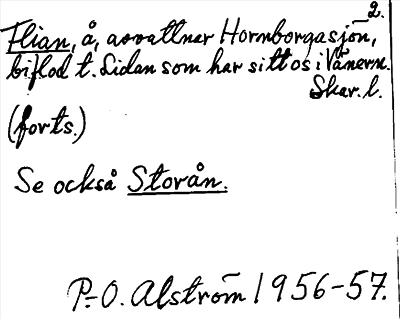 2.
Flian, å, avvattnar Hornborgasjön,
biflod t. Lidan som har sitt os i Vänern.
Skar. l.
(forts.)
Se också Storån.
P.-O. Alström 1956-57.